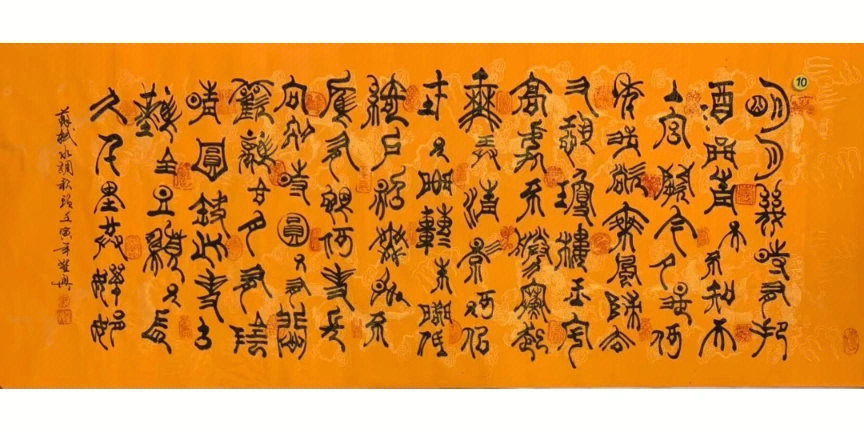 10
明月幾時有把
酒問青天不知天
上宮闕今夕是何
年我欲乘風歸去
又恐瓊樓玉宇
高處不勝寒起
舞弄清影何似
在人間轉朱閣低
綺戶照無眠不
應有恨何事長
向別時圓人有悲
歡離合月有陰
晴圓缺此事古
難全但願人長
久千里共嬋娟
蘇軾水調歌頭壬寅年